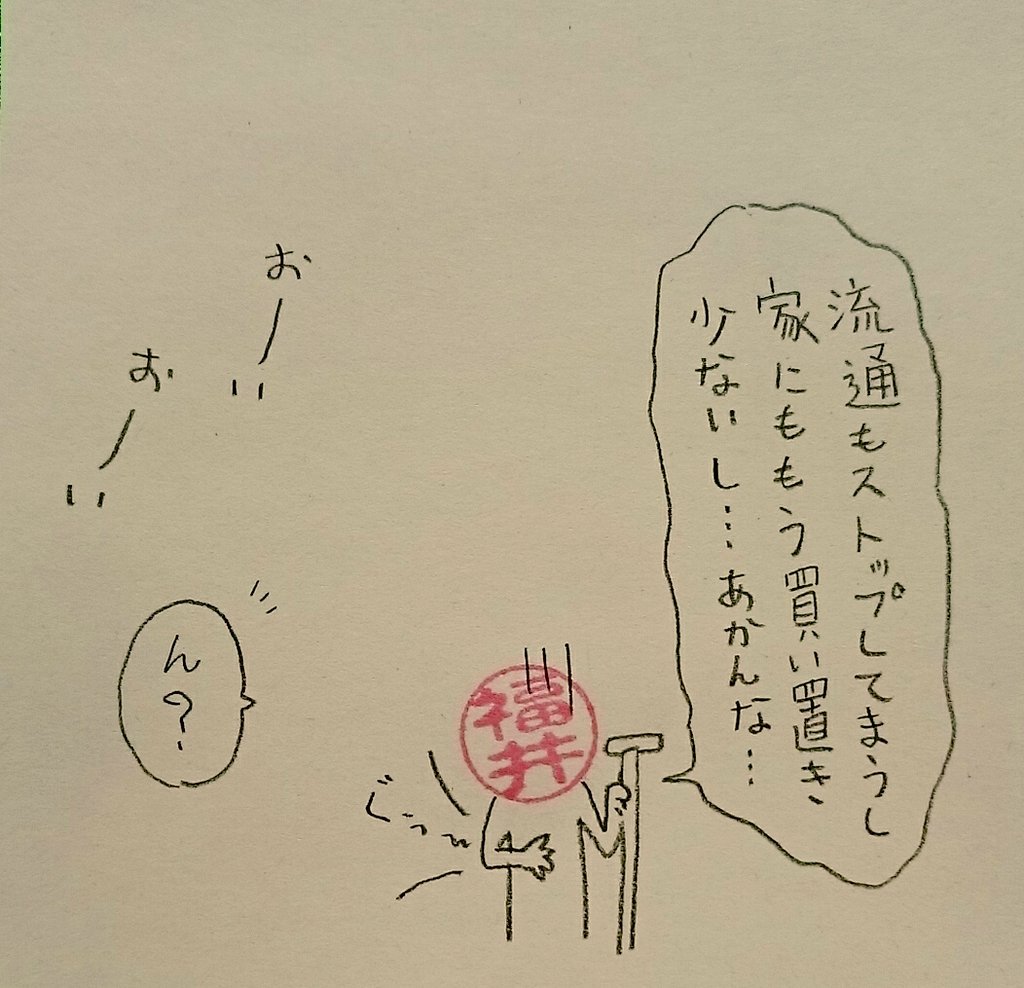 流通もストップしてまうし
家にももう買い置き
少ないし…あかんな…
おーい
おーい
ん？
福井
ぐぅ〜